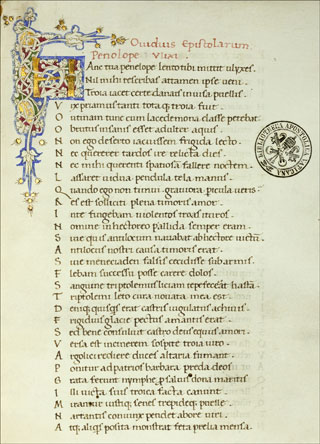 Ouidius Epistolarum
Penolope Vlixi
HAnc tua penelope lento tibi mittit ulyxes
Nil mihi rescribas attamen ipse ueni
Troia iacet certe danais inuisa puellis
Vix priamus tanti totaq; troia fuit
O utinam tunc cum lacedemona classe petebat
Obrutus insanis esset adulter aquis
Non ego deserto iacuissem frigida lecto
Nec quererer tardos ire relicta dies
Nec mihi querenti spatiosā fallere noctem
Lassaret uiduas pendula tela manus
Quando ego non timui grauiora pericula ueris
Res est solliciti plena timoris amor
In te fingebam uiolentos troas ituros
Nomine in hectoreo pallida semper eram
Siue quis antilocum narrabat ab hectore uictū
Antilocus nostri causa timoris erat
Siue meneciaden falsis cecidisse sub armis
Flebam successu posse carere dolos
Sanguine triptolemus liciam tepefecerat hasta
Triptolemi leto cura nouata mea est
Deniq; quisq̃s erat castris iugulatus achiuis
Frigidius glacie pectus amantis erat
Sed bene consuluit casto deus equus amori
Versa est in cinerem sospite troia uiro
Argolici rediere duces altaria fumant
Ponitur ad patrios barbara preda deos
Grata ferunt nymphe p saluis dona maritis
Illi uicta suis troica facta canunt
Mirantur iustiq; senes trepideq; puelle
Narrantis coniunx pendet ab ore uiri
Atq; aliquis posita monstrat fera prelia mensa
BIBLIOTHECA APOSTOLICA VATICANA